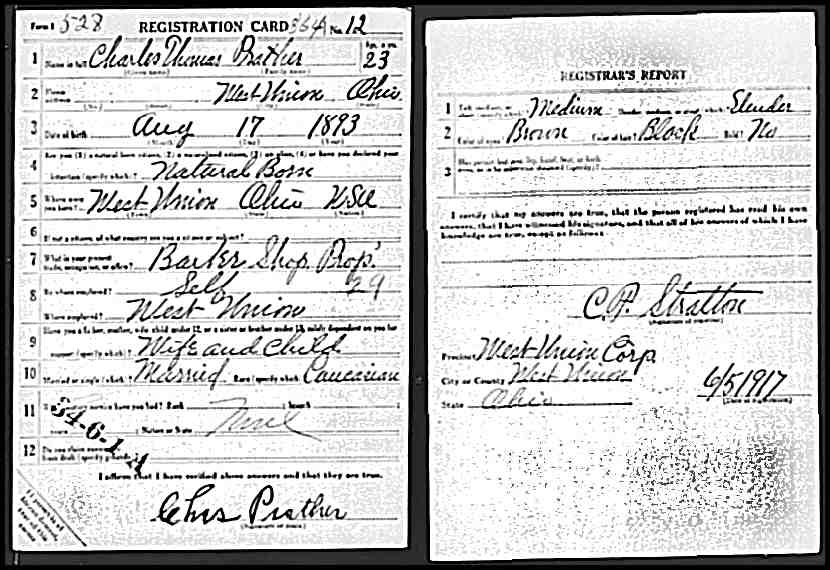 Form 1 528 REGISTRATION CARD 364 No. 12
1 Name in full Charles Thomas Prather Age, in yrs. 23
(Given name) (Family name)
2 Home address West Union Ohio
(No.) (Street) (State)
3 Date of birth Aug 17 1893
(Month) (Day) (Year)
4 Are you (1) a natural born citizen, (2) a naturalized citizen, (3) an alien, (4) or have you declared your
intention (specify which)? Natural Born
5 Where were you born? West Union Ohio
(Town) (State) (Nation)
6 If not a citizen, of what country are you a citizen or subject?
7 What is your present trade, occupation, or office? Barber Shop Prop.
8 By whom employed? Self 29
Where employed? West Union
9 Have you a father, mother, wife, child under 12, or a sister or brother under 12, solely dependent on you for
support (specify which)? Wife and child
10 Married or single (which)? Married Race (specify which)? Caucasian
11 What military service have you had? Rank ; branch ;
years ; Nation or State
12 Do you claim exemption from draft (specify grounds)?
34-6-1-A
I affirm that I have verified above answers and that they are true.
Chas Prather
(Signature or mark)
REGISTRAR'S REPORT
1 Tall, medium, or short (specify which)? Medium Slender, medium, or stout (which)? Slender
2 Color of eyes? Brown Color of hair? Black Bald? No
3 Has person lost arm, leg, hand, foot, or both
eyes, or is he otherwise disabled (specify)?
I certify that my answers are true, that the person registered has read his own
answers, that I have witnessed his signature, and that all of his answers of which I have
knowledge are true, except as follows:
C.P. Stratton
(Signature of registrar)
Precinct West Union Corp.
City or County West Union
State Ohio 6/5 1917
(Date of registration)